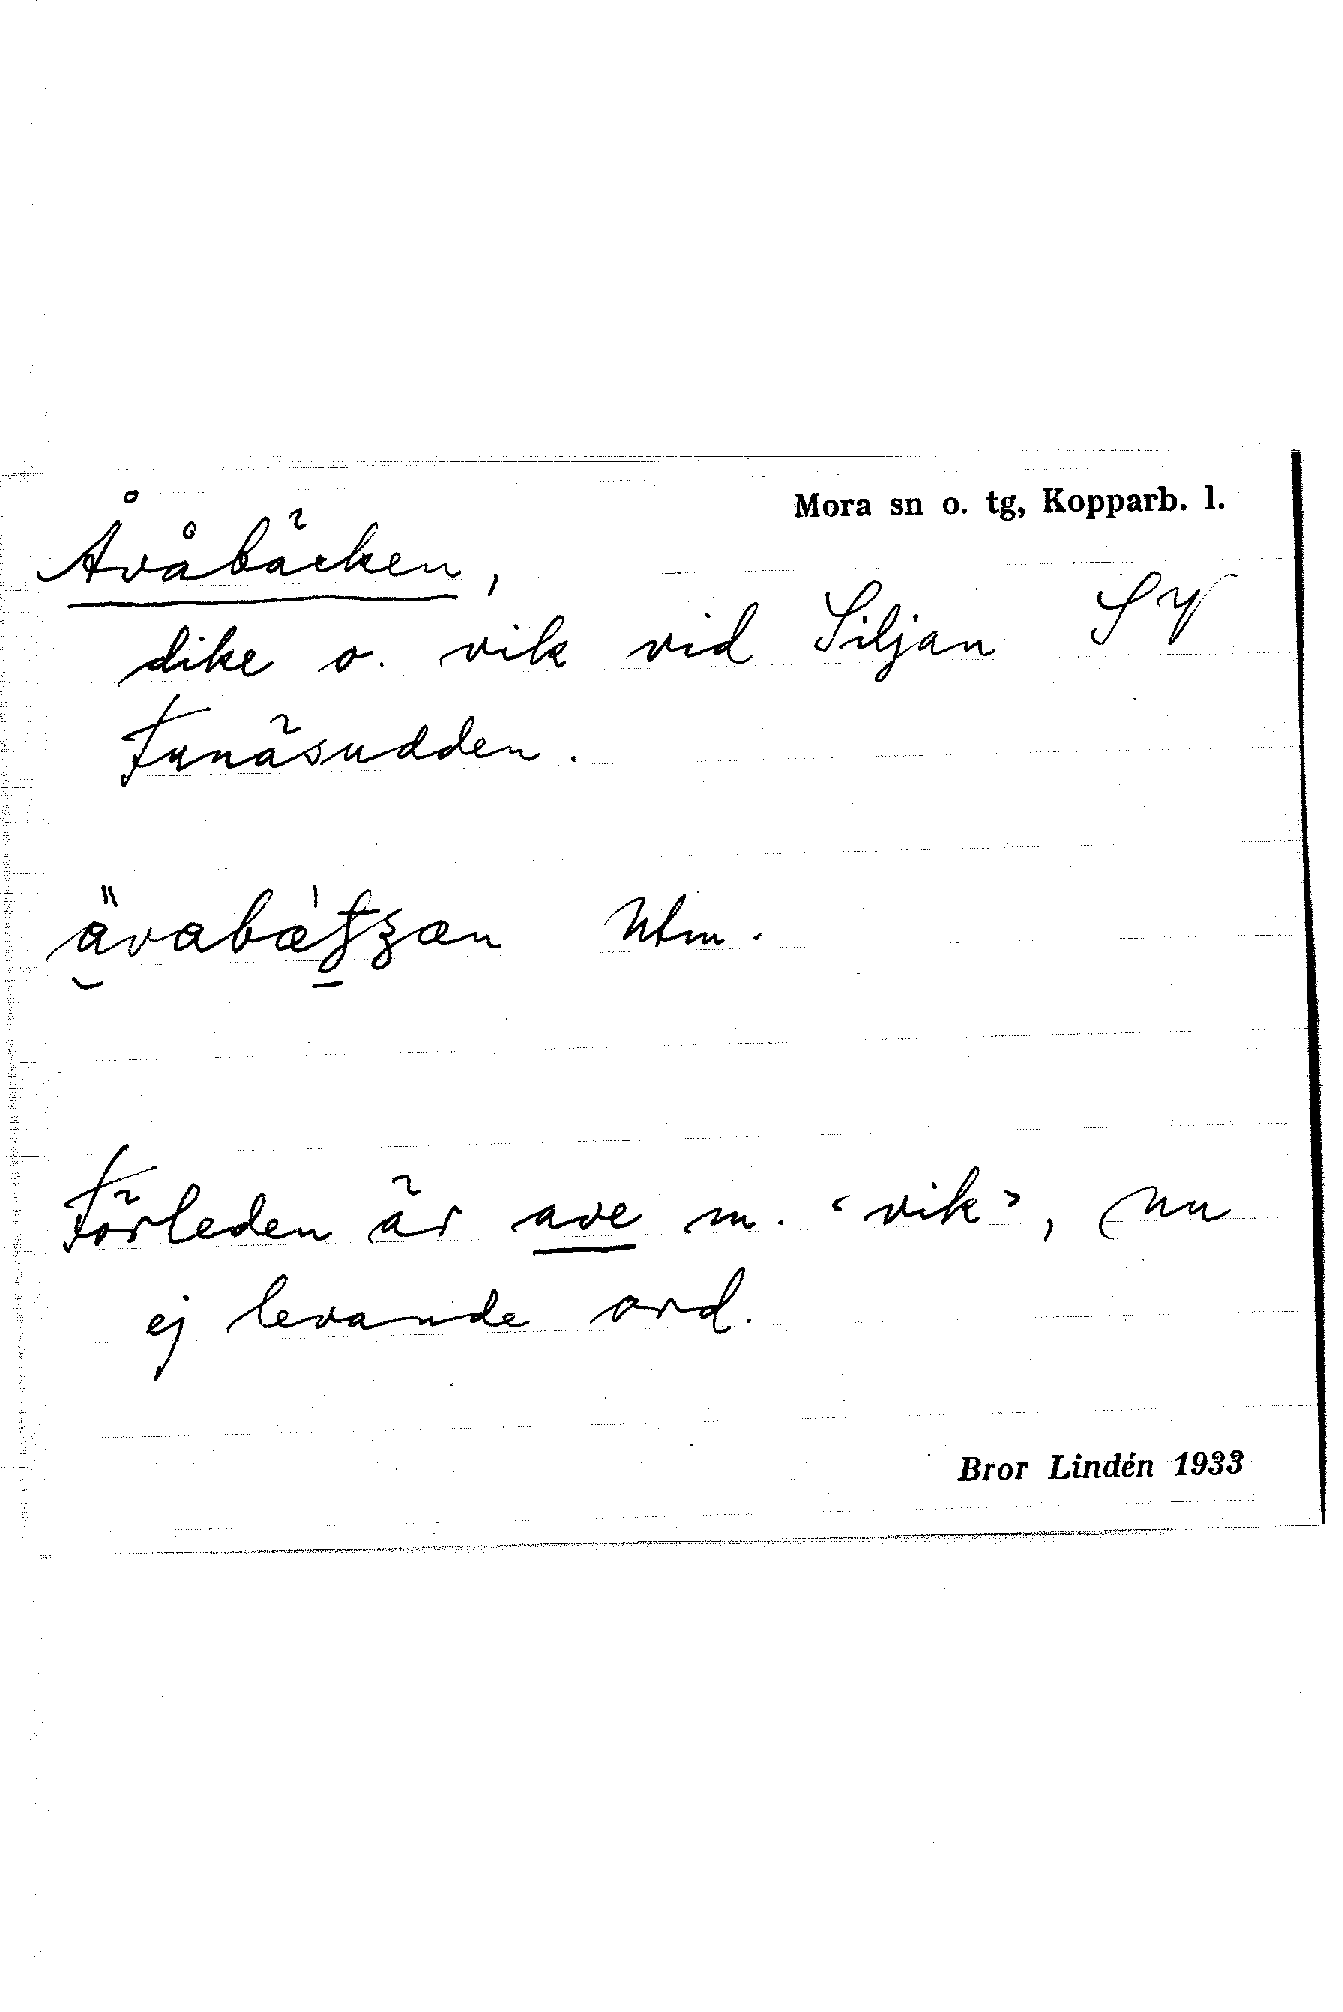 Mora sn o. tg, Kopparb. l.
Åvåbäcken,
dike o. vik vid Siljan SV
Funäsudden.
Utm.
Förleden är ave m. ‘vik’, nu
ej levande ord.
Bror Lindén 1933